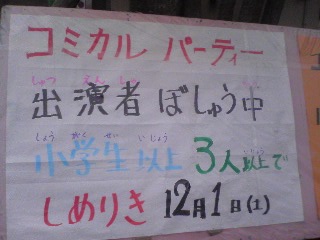 コミカル パーティー
しゅつ えん しゃ
出演者 ぼしゅう中
しょう がく せい いじょう
小学生以上 3人以上で
しめりき 12月1日(土)